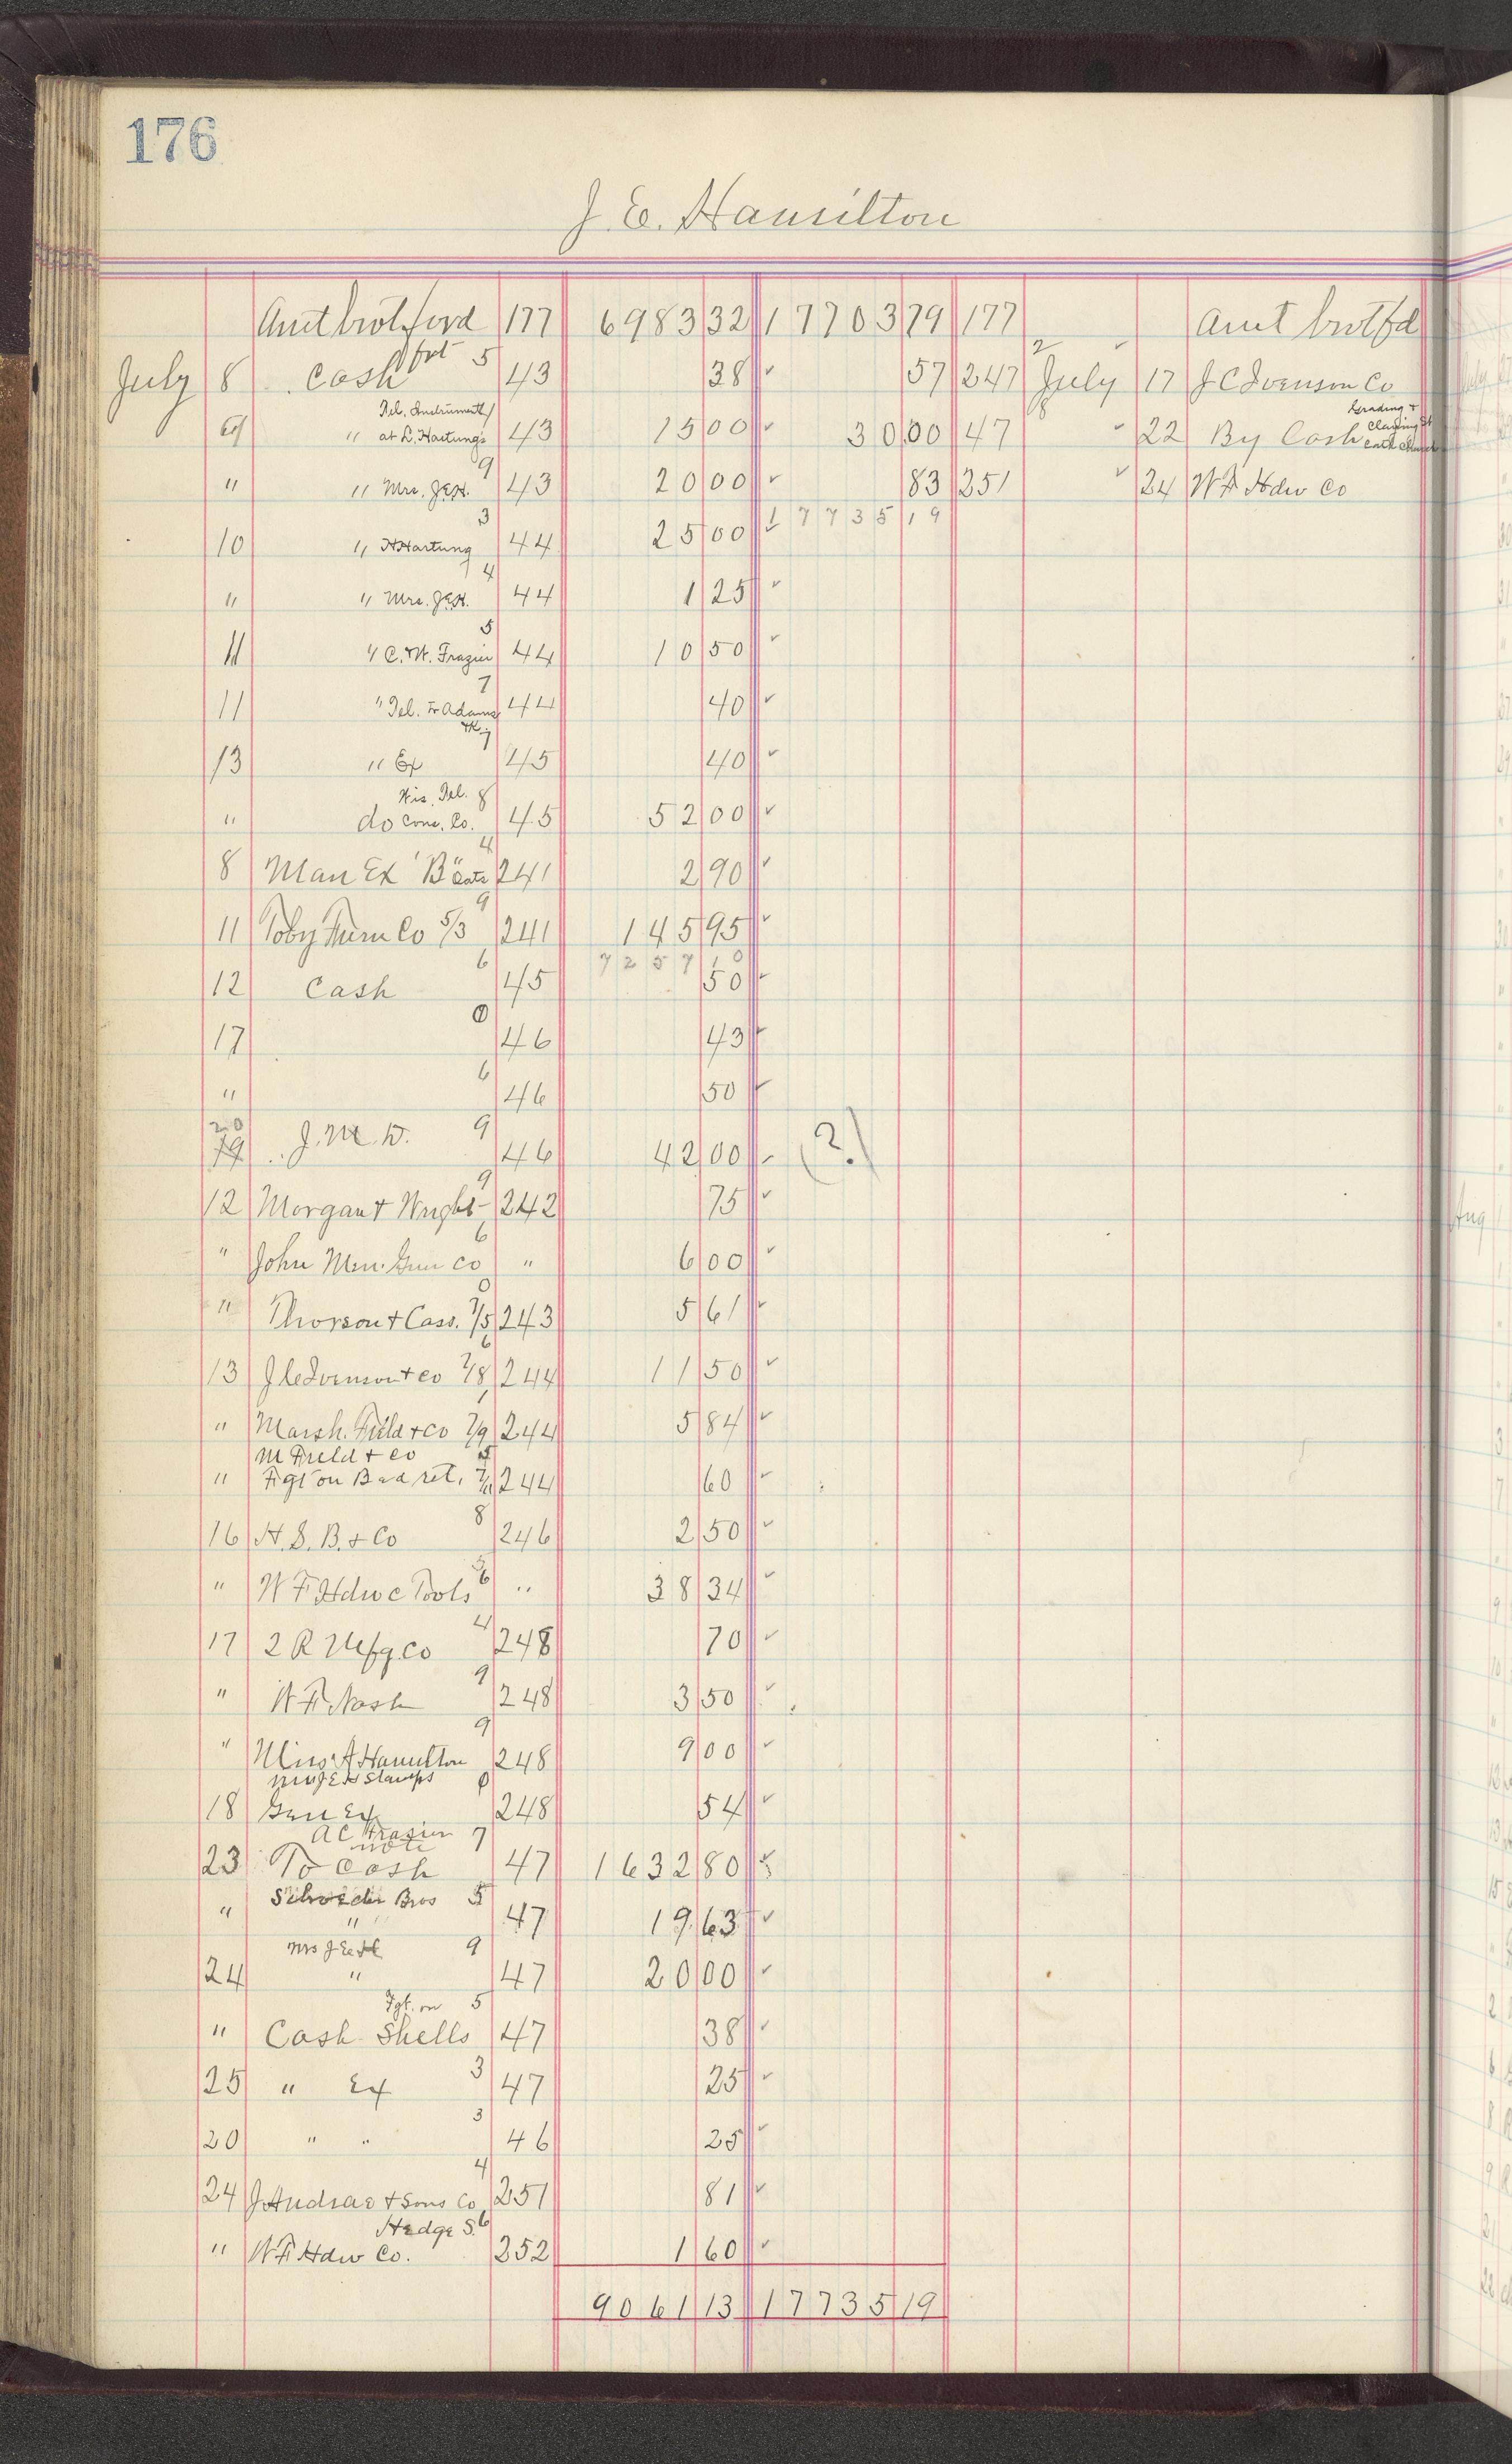 176
J. E. Hamilton
Amt brot ford 177 6983 32 17703 79 177 Amt brotfd
July 8 Cash frt 5 43 38 57 247 2 July 17 J C Ivenson Co
Tel. Instrument
" at L. Hartung's 43 15 00 30 00 47 8 22 By Cash Grading +
" " Mrs. J.E.H. 9 43 20 00 83 251 24 W F Hdw Co
17735 19
10 " H Hartung 3 44 25 00
" " Mrs. J.E.H. 4 44 1 25
11 " C. W. Frazier 5 44 10 50
11 " Tel. to Adams 7 44 40
13 " Ex 7 45 40
Wis. Tel. 8
" do Cons. Co. 45 52 00
8 Man Ex "B" Oats 4 241 2 90
11 Toby Furn Co 5/3 9 241 145 95
7257 10
12 Cash 6 45 50
17 0 46 43
" 6 46 50
20
19 J. M. W. 9 46 42 00 (?)
12 Morgan + Wright 9 242 75
" John Mun. Gun Co 6 " 6 00
" Thorson + Cass. 7/5 0 243 5 61
13 J C Ivenson + Co 7/8 6 244 11 50
" Marsh. Field + Co 7/9 1 244 5 84
M Field + Co
" Fgt on Bad ret. 7/11 244 60
16 H. S. B. + Co 8 246 2 50
" W F Hdw C Tools 6 " 38 34
17 2 R Mfg. Co 4 248 70
" W F Nash 9 248 3 50
" Miss A Hamilton 9 248 9 00
Mrs J E H Stamps 0
18 Gen Ex 248 54
A C Frasier 7
note
23 To Cash 47 1632 80
Schroeder Bros 5
" " 47 19 63
Mrs J E H 9
24 " 47 20 00
Fgt. on 5
" Cash Shells 47 38
25 " Ex 3 47 25
20 " " 3 46 25
24 J Andrae + Sons Co 4 251 81
Hedge S. 6
" W F Hdw Co. 252 1 60
9061 13 17735 19
Aug